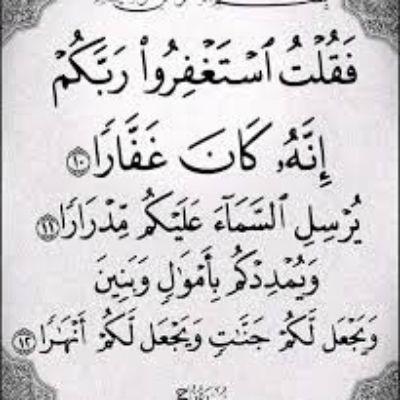 فَقُلْتُ ٱسْتَغْفِرُوا۟ رَبَّكُمْ
إِنَّهُۥ كَانَ غَفَّارًا ١٠
يُرْسِلِ ٱلسَّمَآءَ عَلَيْكُم مِّدْرَارًا ١١
وَيُمْدِدْكُم بِأَمْوَٰلٍ وَبَنِينَ
وَيَجْعَل لَّكُمْ جَنَّـٰتٍ وَيَجْعَل لَّكُمْ أَنْهَـٰرًا ١٢